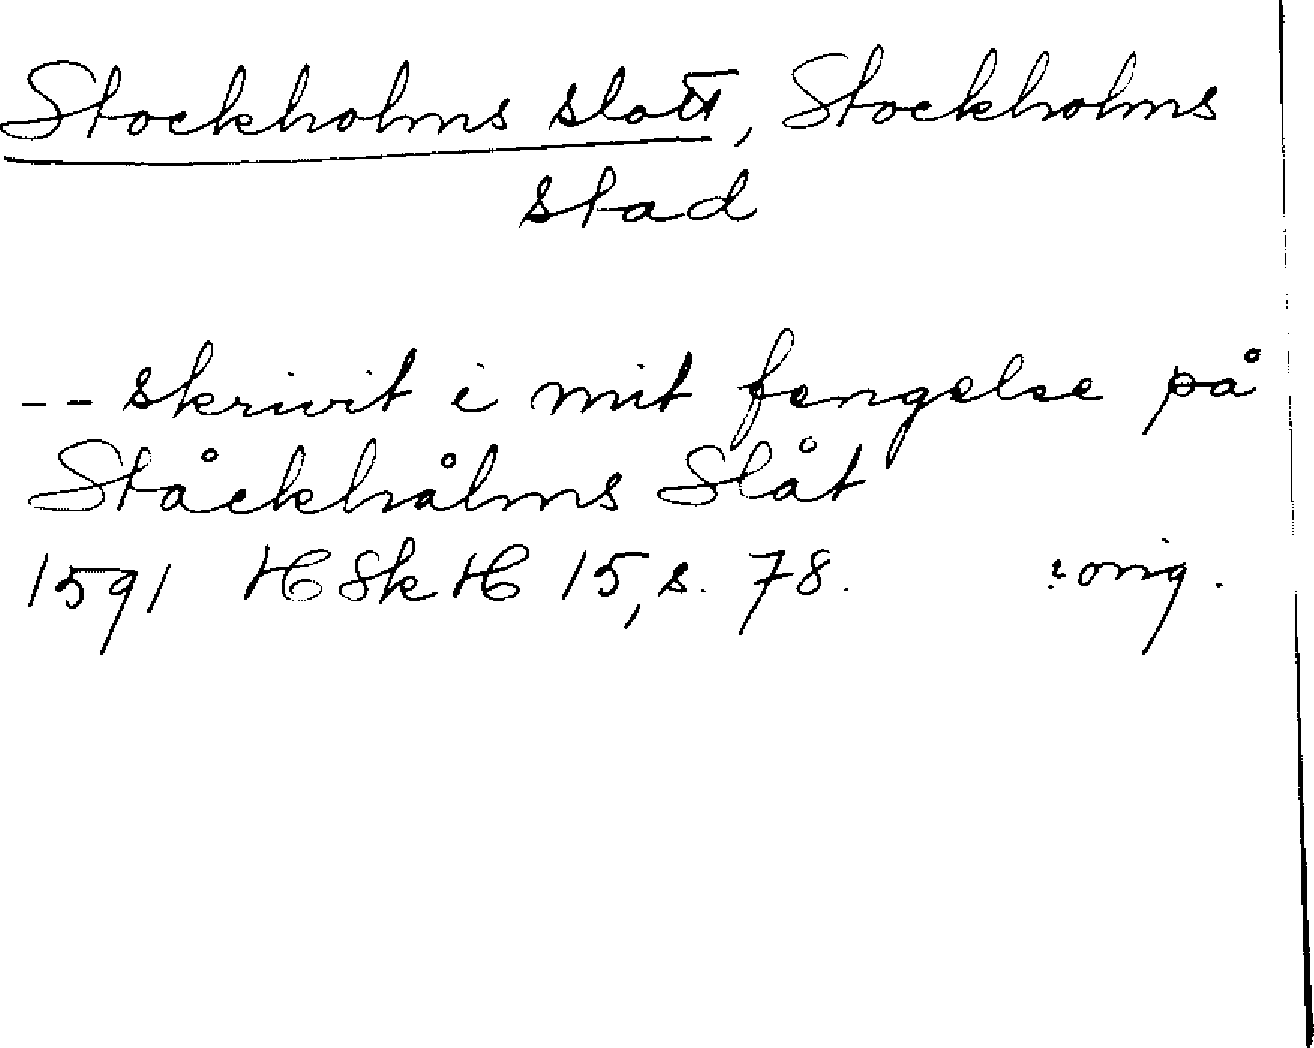 Stockholms slott, Stockholms
stad
-- skrivit i mit fengelse på
Ståckhålms Slåt
1591 HSkH 15, s. 78. orig.